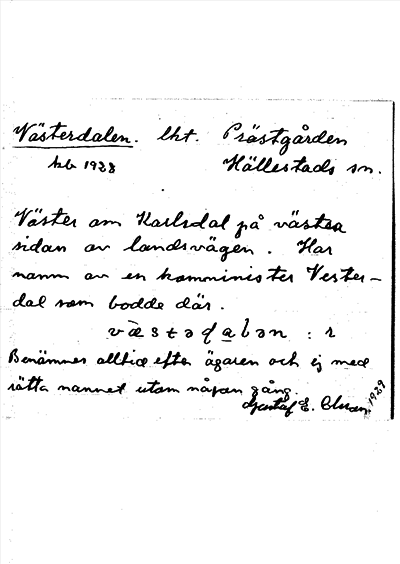 Västerdalen. lht. Prästgården
hb 1928 Hällestads sn.
Väster om Karlsdal på västra
sidan av landsvägen. Har
namn av en komminister Vester-
dal som bodde där.
: r
Benämnes alltid efter ägaren och ej med
rätta namnet utom någon gång.
Gustaf E. Olsson. 1929